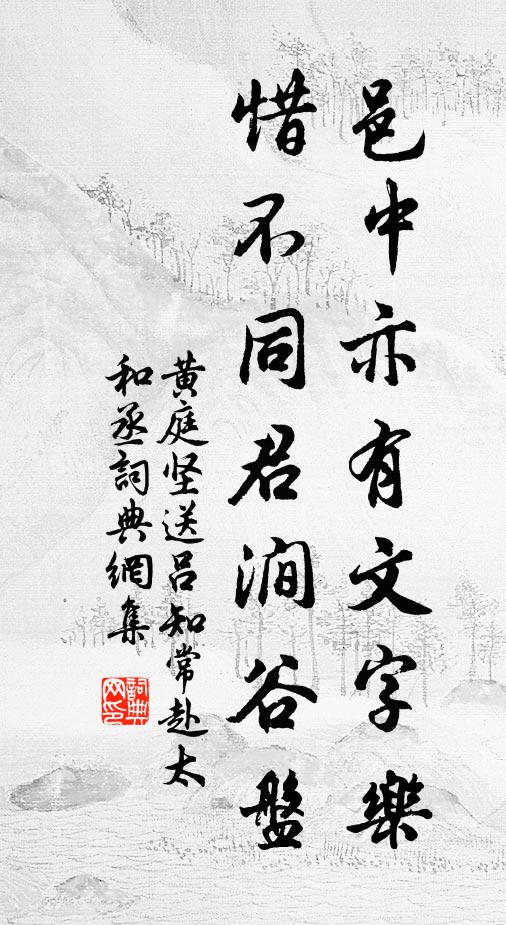 邑中亦有文字樂
惜不同君澗谷盤
黄庭坚送吕知常赴太
和丞詞典網集
詞典
网印